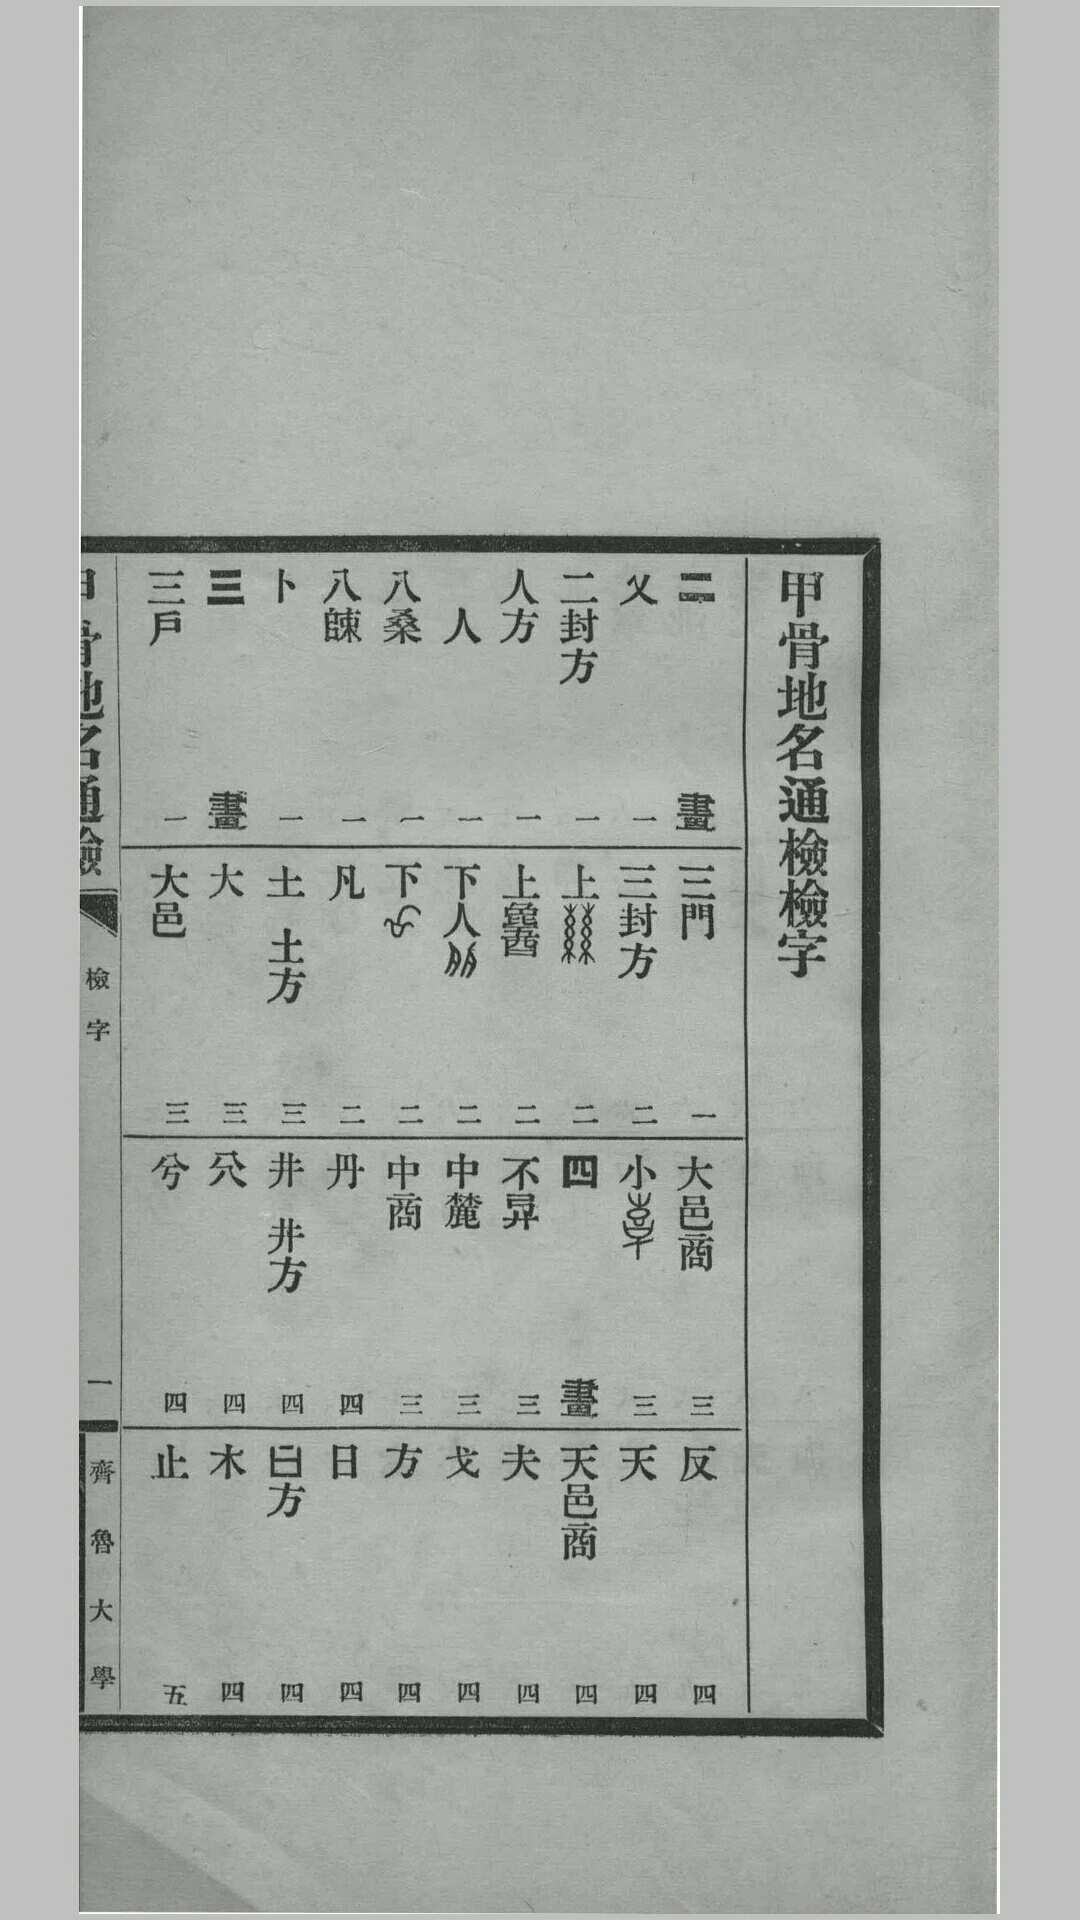 甲骨地名通檢檢字
二畫
乂 一
二封方 一
人方 一
人 一
八桑 一
八餗 一
卜 一
三畫
三戶 一
三門 一
三封方 二
上 二
上 二
下人 二
下 二
凡 二
土 土方 三
大 三
大邑 三
大邑商 三
小 三
四畫
不 三
中麓 三
中商 三
丹 四
井 井方 四
四
兮 四
反 四
天 四
天邑商 四
夫 四
戈 四
方 四
日 四
方 四
木 四
止 五
甲骨地名通檢
檢字
一
齊魯大學